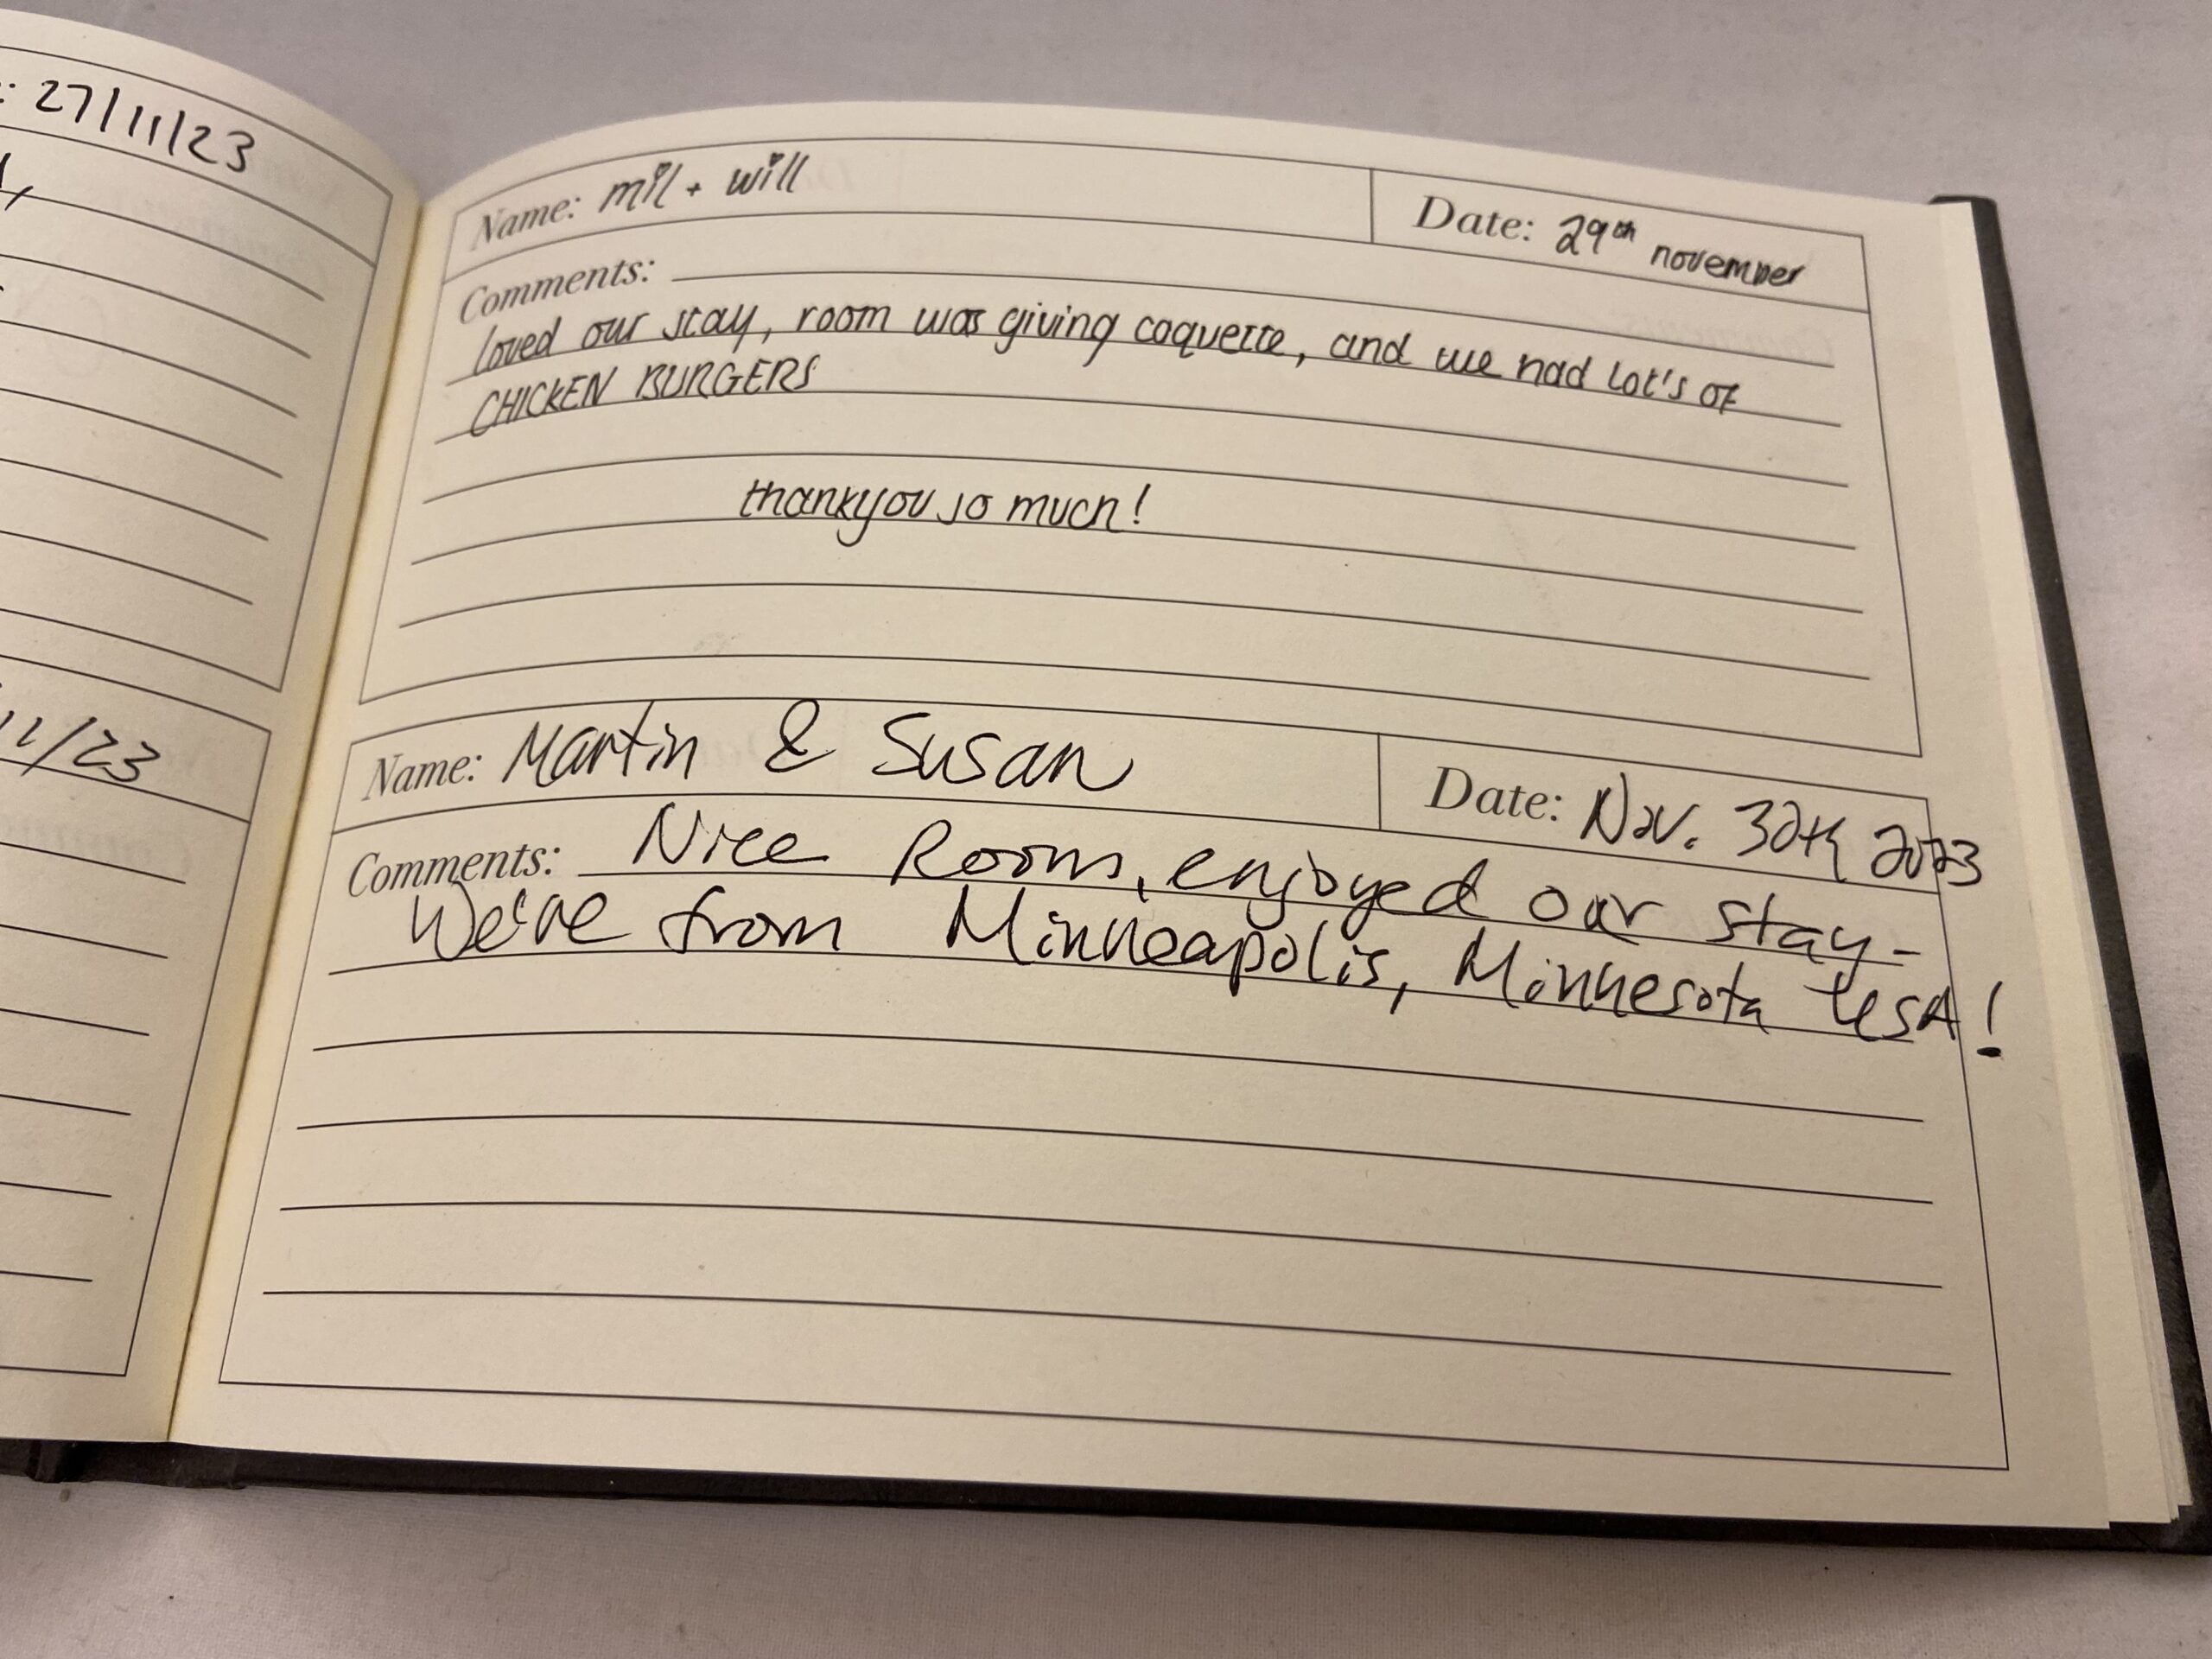 : 27/11/23
11/23
Name: mil + will
Date: 29th november
Comments:
loved our stay, room was giving coquette, and we had lot's of
CHICKEN BURGERS
thankyou so much!
Name: Martin & Susan
Date: Nov. 30th 2023
Comments: Nice Room, enjoyed our stay -
We're from Minneapolis, Minnesota USA!